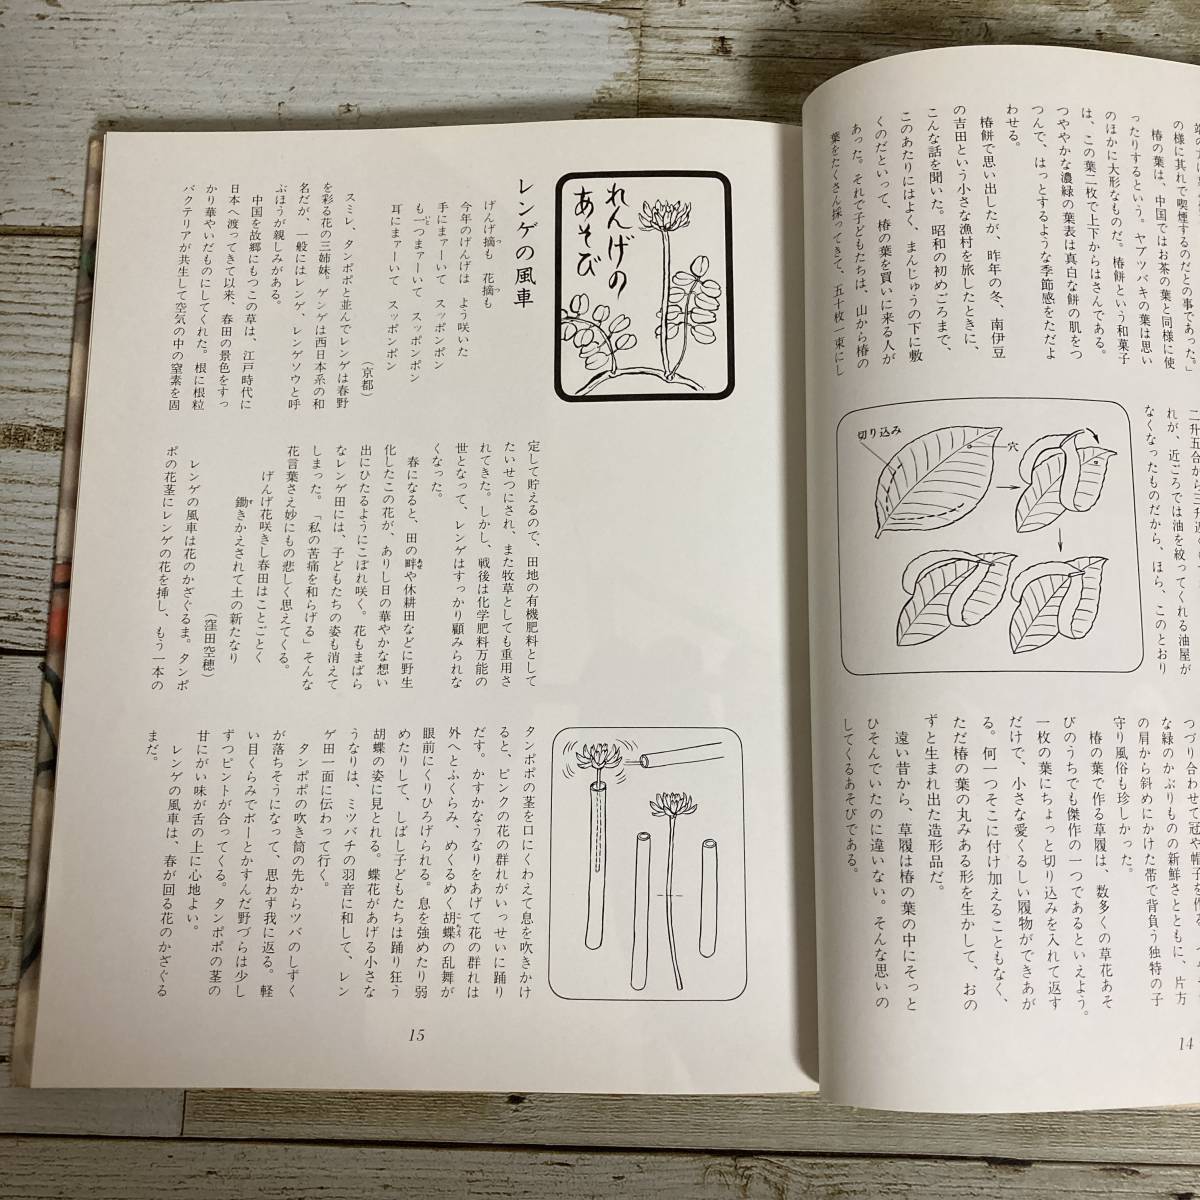 端の下に
の様に其れで喫煙するのだとの事であった。」
椿の葉は、中国ではお茶の葉と同様に使
ったりするという。ヤブツバキの葉は思い
のほかに大形なものだ。椿餅という和菓子
は、この葉二枚で上下からはさんである。
つややかな濃緑の葉表は真白な餅の肌をつ
つんで、はっとするような季節感をただよ
わせる。
椿餅で思い出したが、昨年の冬、南伊豆
の吉田という小さな漁村を旅したときに、
こんな話を聞いた。昭和の初めごろまで、
このあたりにはよく、まんじゅうの下に敷
くのだといって、椿の葉を買いに来る人が
あった。それで子どもたちは、山から椿の
葉をたくさん採ってきて、五十枚一束にし
二升五合から三升
れが、近ごろでは油を絞ってくれる油屋が
なくなったものだから、ほら、このとおり
切り込み
穴
つづり合わせて冠や帽子を作
な緑のかぶりものの新鮮さとともに、片方
の肩から斜めにかけた帯で背負う独特の子
守り風俗も珍しかった。
椿の葉で作る草履は、数多くの草花あそ
びのうちでも傑作の一つであるといえよう。
一枚の葉にちょっと切り込みを入れて返す
だけで、小さな愛くるしい履物ができあが
る。何一つそこに付け加えることもなく、
ただ椿の葉の丸みある形を生かして、おの
ずと生まれ出た造形品だ。
遠い昔から、草履は椿の葉の中にそっと
ひそんでいたのに違いない。そんな思いの
してくるあそびである。
14
れんげの
あそび
レンゲの風車
げんげ摘も　花摘も
今年のげんげは　よう咲いた
手にまァーいて　スッポンポン
も一つまァーいて　スッポンポン
耳にまァーいて　スッポンポン
（京都）
スミレ、タンポポと並んでレンゲは春野
を彩る花の三姉妹。ゲンゲは西日本系の和
名だが、一般にはレンゲ、レンゲソウと呼
ぶほうが親しみがある。
中国を故郷にもつこの草は、江戸時代に
日本へ渡ってきて以来、春田の景色をすっ
かり華やいだものにしてくれた。根に根粒
バクテリアが共生して空気の中の窒素を固
定して貯えるので、田地の有機肥料として
たいせつにされ、また牧草としても重用さ
れてきた。しかし、戦後は化学肥料万能の
世となって、レンゲはすっかり顧みられな
くなった。
春になると、田の畔や休耕田などに野生
化したこの花が、ありし日の華やかな想い
出にひたるようにこぼれ咲く。花もまばら
なレンゲ田には、子どもたちの姿も消えて
しまった。「私の苦痛を和らげる」そんな
花言葉さえ妙にもの悲しく思えてくる。
げんげ花咲きし春田はことごとく
鋤きかえされて土の新たなり
（窪田空穂）
レンゲの風車は花のかざぐるま。タンポ
ポの花茎にレンゲの花を挿し、もう一本の
タンポポの茎を口にくわえて息を吹きかけ
ると、ピンクの花の群れがいっせいに踊り
だす。かすかなうなりをあげて花の群れは
外へとふくらみ、めくるめく胡蝶の乱舞が
眼前にくりひろげられる。息を強めたり弱
めたりして、しばし子どもたちは踊り狂う
胡蝶の姿に見とれる。蝶花があげる小さな
うなりは、ミツバチの羽音に和して、レン
ゲ田一面に伝わって行く。
タンポポの吹き筒の先からツバのしずく
が落ちそうになって、思わず我に返る。軽
い目くらみでボーとかすんだ野づらは少し
ずつピントが合ってくる。タンポポの茎の
甘にがい味が舌の上に心地よい。
レンゲの風車は、春が回る花のかざぐる
まだ。
15